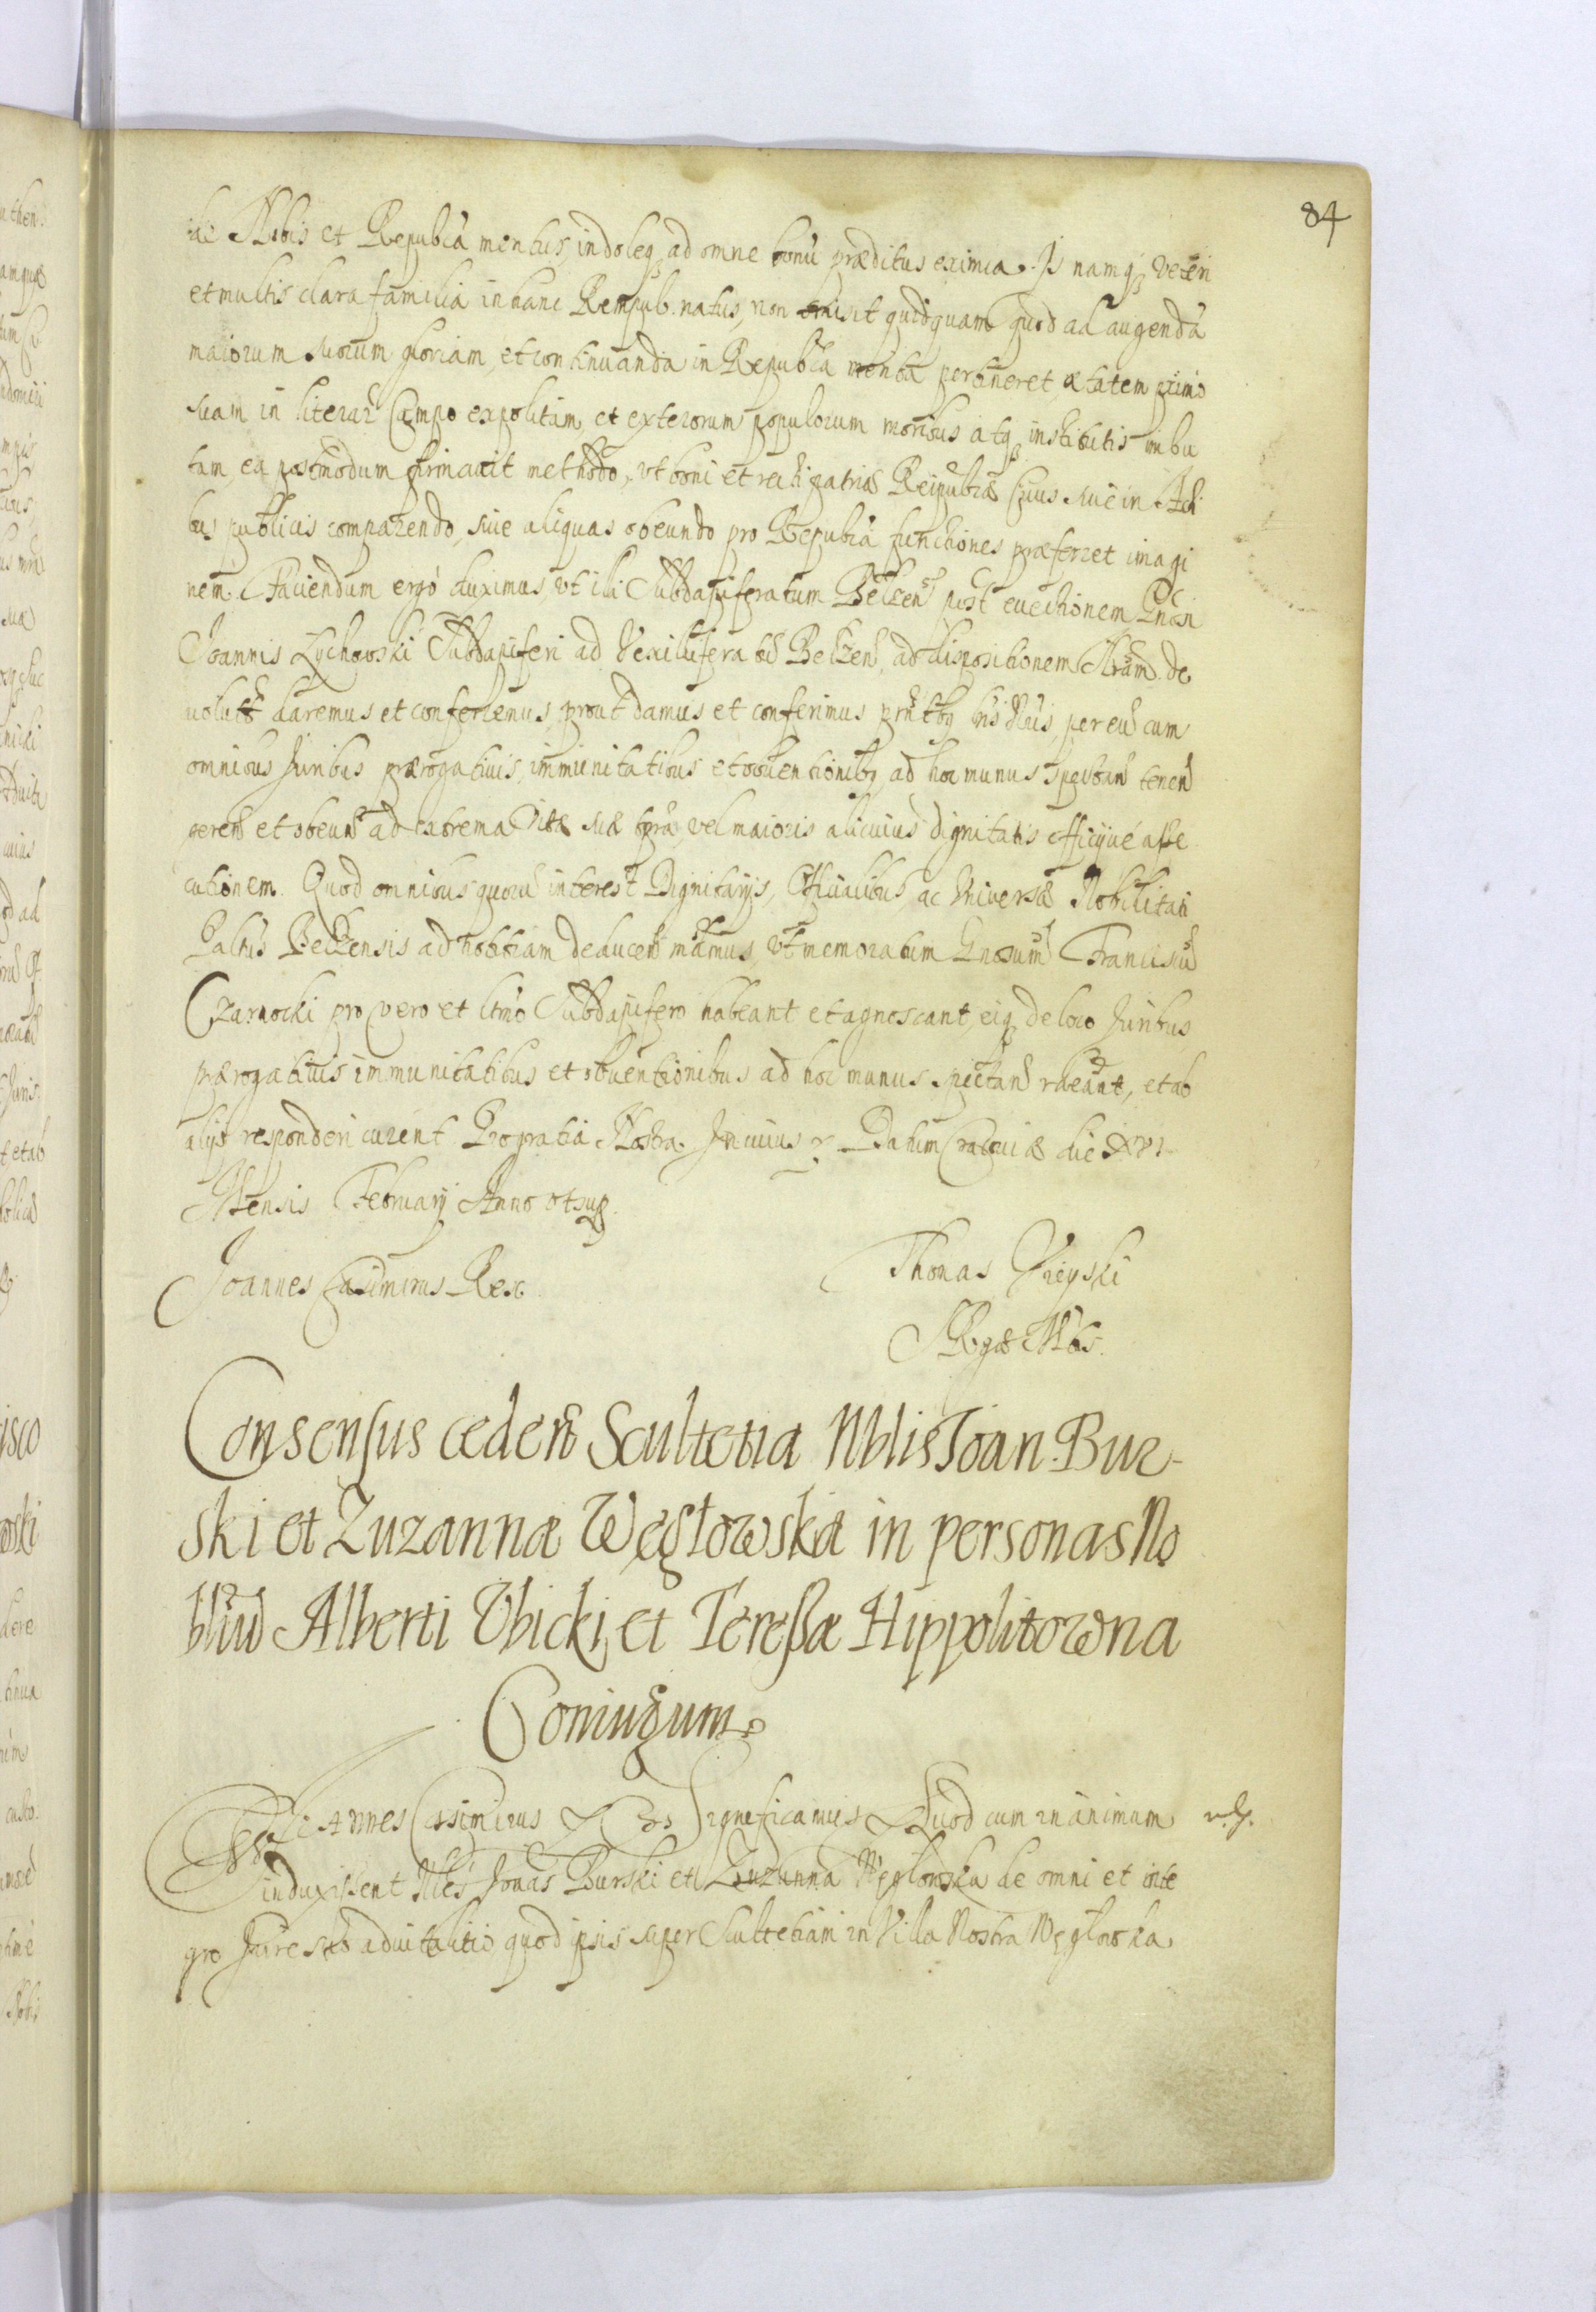 84
de Nobis et Republica meritus, indoleq ad omne bonũ præditus eximia. Is namq veteri
et multis clara familia in hanc Rempub. natus, non omisit quidquam quod ad augendã
maiorum suorum gloriam, et continuanda in Republica merita pertineret, ætatem primo
suam in literar campo expolitam, et exterorum populorum moribus atq institutis imbu
tam, ea postmodum firmavit methodo, vt boni et recti patriæ Reipublicæ civis sive in Acti
bus publicis comparendo, sive aliquas obeundo pro Republica functiones præferret imagi
nem. Faciendum ergo duximus, vt illi Subdapiferatum Belzen post evectionem Gnosi
Joannis Lychowski Subdapiferi ad Vexilliferatũ Belzen, ad dispositionem Nram de
volutũ daremus et conferremus, prout damus et conferimus prntbq lris Nris, per eũ cum
omnibus Juribus prærogativis, immunitatibus et obventionibq ad hoc munus spectan tenen
geren et obeun ad extrema vitæ suæ tpra, vel maioris alicuius dignitatis officijvé asse
cutionem. Quod omnibus quorũ interest Dignitarijs, Officialibus, ac Universæ Nobilitati
Paltus Belzensis ad notitiam deducen mãmus, vt memoratum Gnosum Franciscũ
Czarnocki pro vero et ltmo Subdapifero habeant et agnoscant, eiq de loco Juribus,
prærogativis immunitatibus et obventionibus ad hoc munus spectan rndeant, et ab
alijs responderi curent Pro gratia Nostra. In cuius Datum Cracoviæ die XVI
Mensis February Anno vt sup.
Joannes Casimirus Rex.
Thomas Vieyski
SRgæ Mtis.
Consensus ceden Scultetia Nblis Joan. Bur-
ski et Zuzannæ Węglowska in personas No
bliũ Alberti Vbicki, et Teressæ Hippolitowna
Coniugum.
Joannes Casimirus Significamus Quod cum in animum
induxissent Nles Jonas Burski et Zuzanna Węglowska de omni et inte
gro Jure suo advitalitio quod ipsis super Scultetiam in Villa Nostra Węglowka